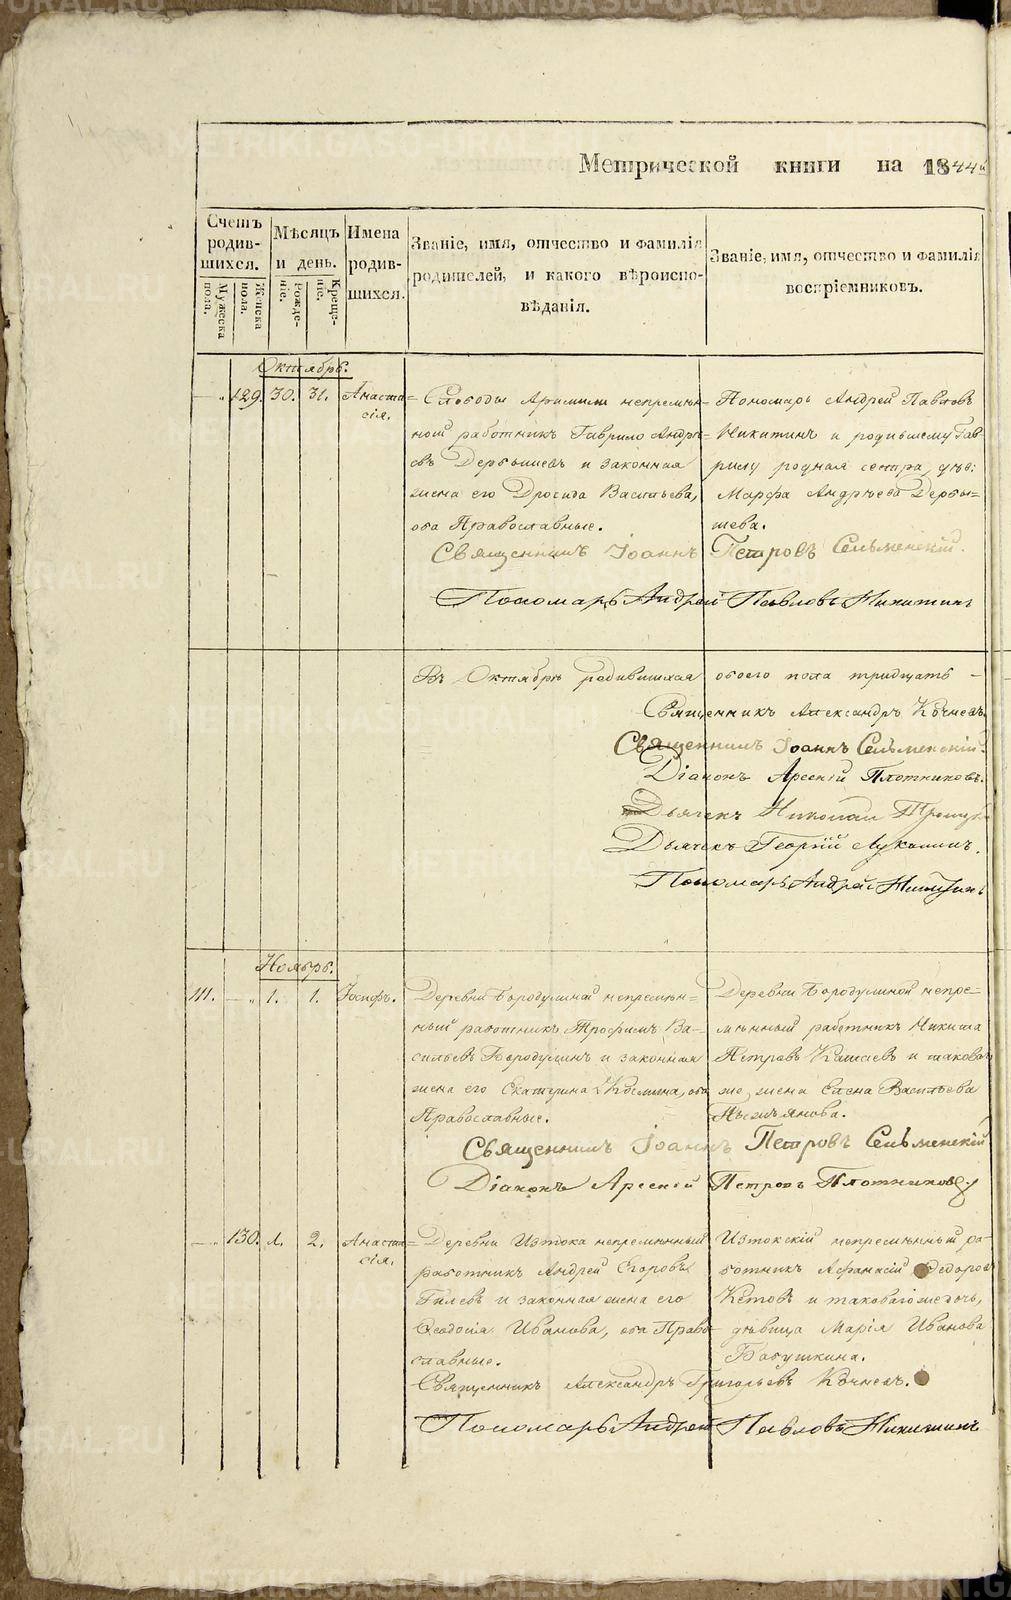 METRIKI.GASU-URAL.RU
Метрической книги на 1844й
Счетъ родив-шихся.
Мужеска пола.
Женска пола.
Мѣсяцъ и день.
Рожде-ніе.
Креще-ніе.
Имена родив-шихся.
Званіе, имя, отчество и фамилія
родителей, и какого вѣроиспо-
вѣданія.
Званіе, имя, отчество и фамилія
воспріемниковъ.
Октябрь.
129. 30. 31. Анаста=
сія.
Слободы Арамили непремѣн-
ной работникъ Гаврило Андре=
евъ Дербышевъ и законная
жена его Дросида Васильева,
оба Православные.
Пономарь Андрей Павловъ
Никитинъ и родившему Гав-
рилу родная сестра, дѣв:
Марфа Андрѣева Дербы=
шева.
Священникъ Іоаннъ Петровъ Сельменскій.
Пономарь Андрей Павловъ Никитинъ
Въ Октябрѣ родившихся обоего пола тридцать -
Священникъ Александръ Кочневъ.
Священникъ Іоаннъ Сельменскій.
Діаконъ Арсеній Плотниковъ.
Дьячекъ Николай
Дьячекъ Георгій Лукашинъ.
Пономарь Андрей Никитинъ
Ноябрь.
111. 1. 1. Іосифъ.
Деревни Бородулиной непремѣн-
ный работникъ Трофимъ Ва-
сильевъ Бородулинъ и законная
жена его Екатерина Козмина, оба
Православные.
Деревни Бородулиной непре-
мѣнный работникъ Никита
Петровъ и таковаго
же жена Елена Васильева
Священникъ Іоаннъ Петровъ Сельменскій
Діаконъ Арсеній Петровъ Плотниковъ
130. 1. 2. Анаста=
сія.
Деревни Истока непремѣнный
работникъ Андрей Егоровъ
Гилевъ и законная жена его
Ѳеодосія Иванова, оба Право-
славные.
Истокскій непремѣнный ра-
ботникъ Афанасій Ѳедоровъ
Кетовъ и таковагоже дочь,
дѣвица Марія Иванова
Бабушкина.
Священникъ Александръ Григорьевъ Кочневъ.
Пономарь Андрей Павловъ Никитинъ